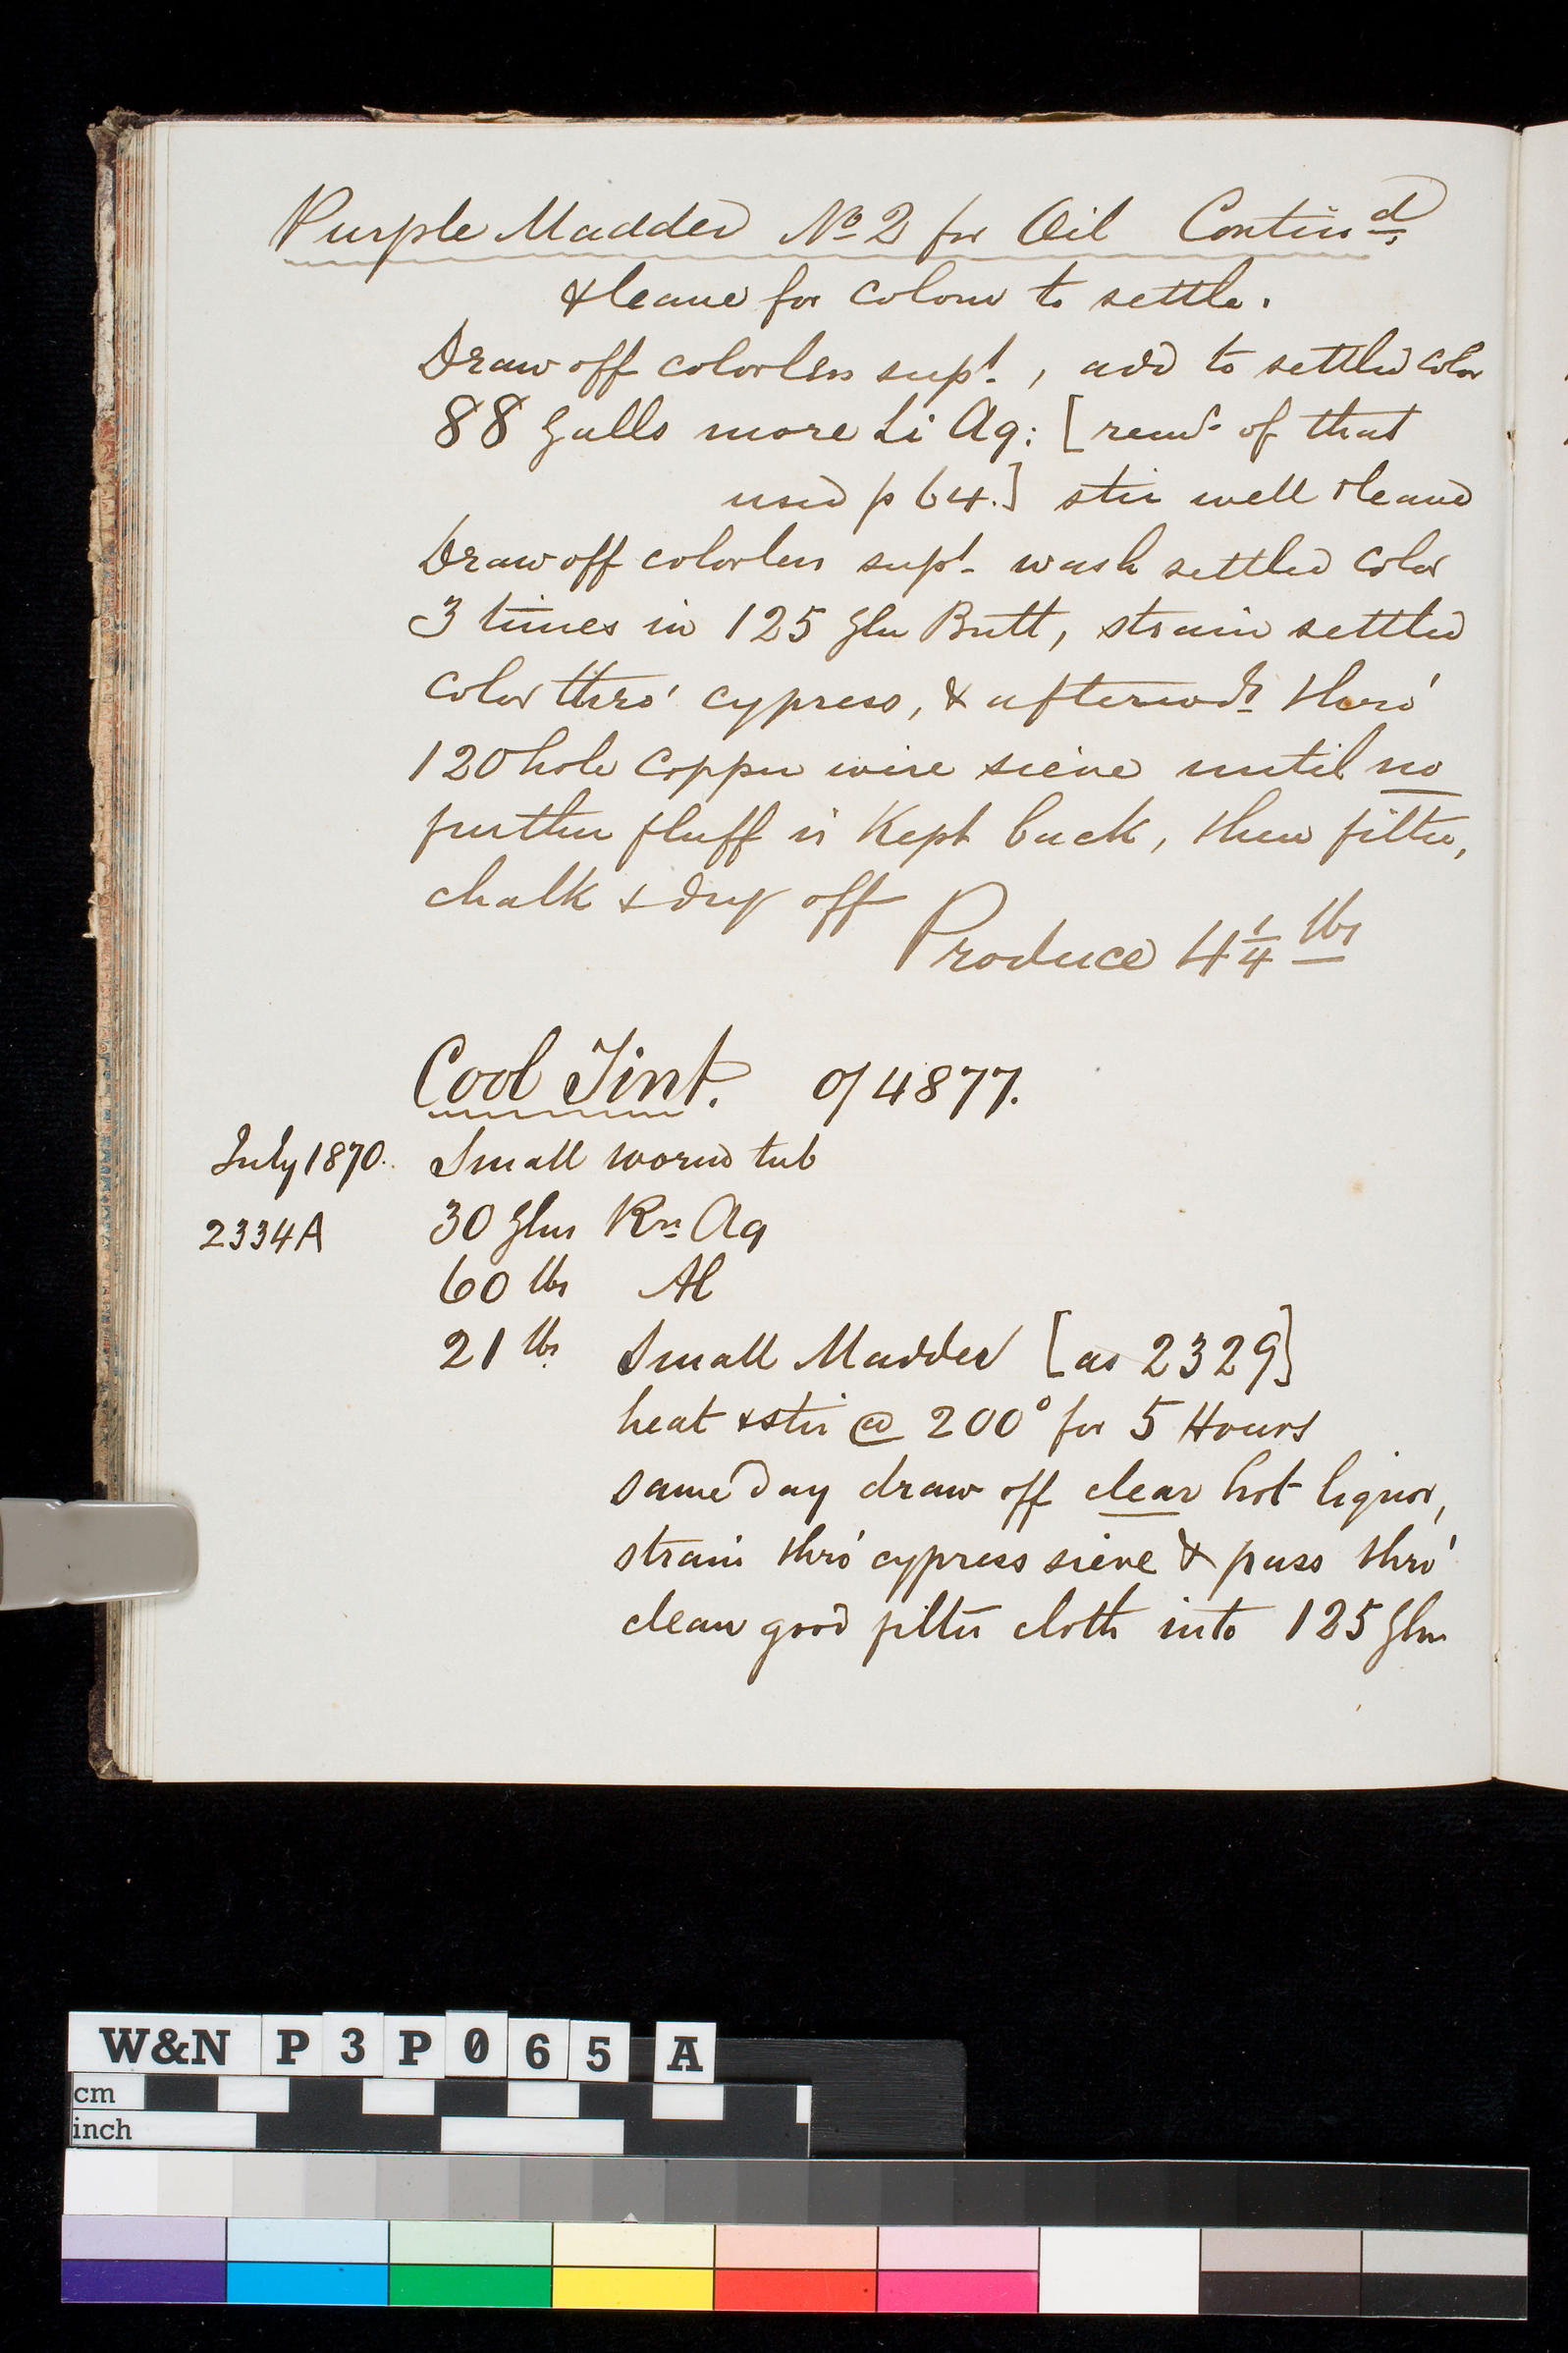 Purple Madder No 2 for Oil Contin.d
& leave for colour to settle.
Draw off colorless supt., add to settled color
88 Galls more Li Aq: [remr of that
used p 64.] stir well & leave
Draw off colorless supt. wash settled color
3 times in 125 Gln Butt, strain settled
color thro' cypress, & afterwds thro'
120 hole copper wire sieve until no
further fluff is Kept back, then filter,
chalk & dry off
Produce 4 1/4 lbs
Cool Tint. O/4877.
July 1870. Small worm tub
2334A 30 Glns Rn Aq
60 lbs Al
21 lbs Small Madder [as 2329]
heat & stir @ 200° for 5 Hours
same Day draw off clear hot liquor,
strain thro' cypress sieve & pass thro'
clean good filter cloth into 125 Gln
W&N P3P065 A
cm
inch